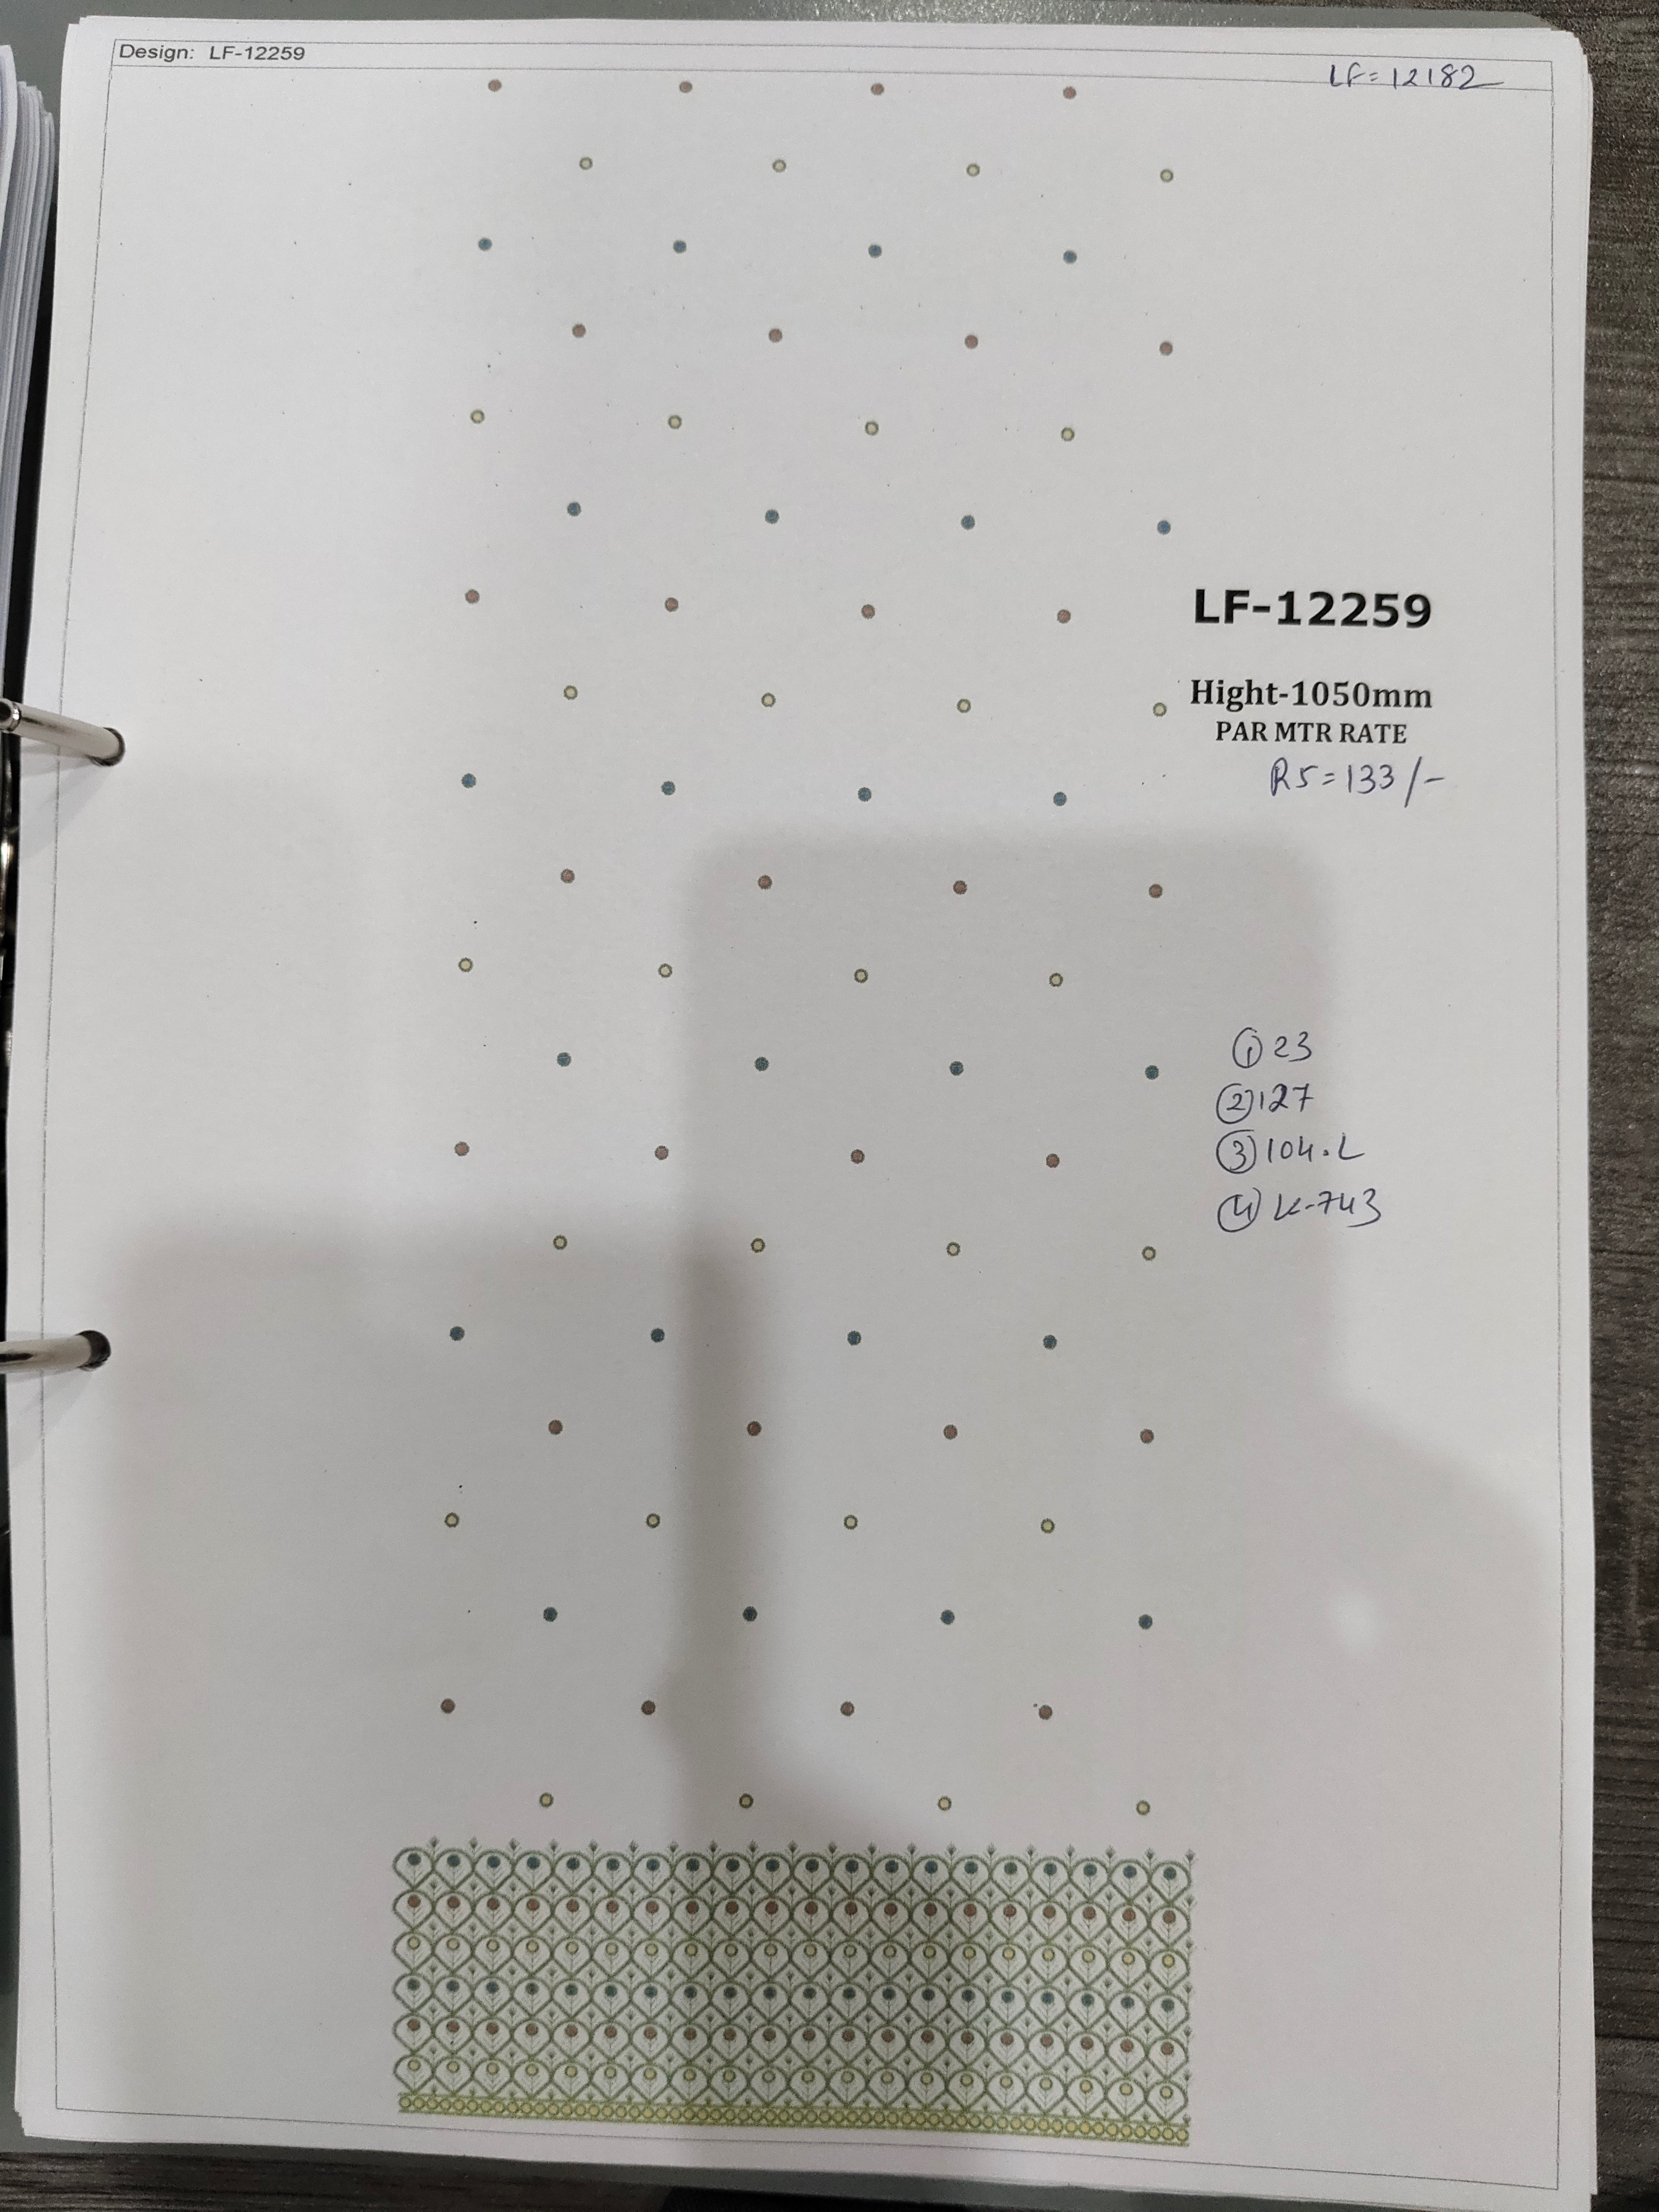 Design: LF-12259
LF=12182
LF-12259
Hight-1050mm
PAR MTR RATE
RS=133/-
① 23
② 127
③ 104.L
④ K-743